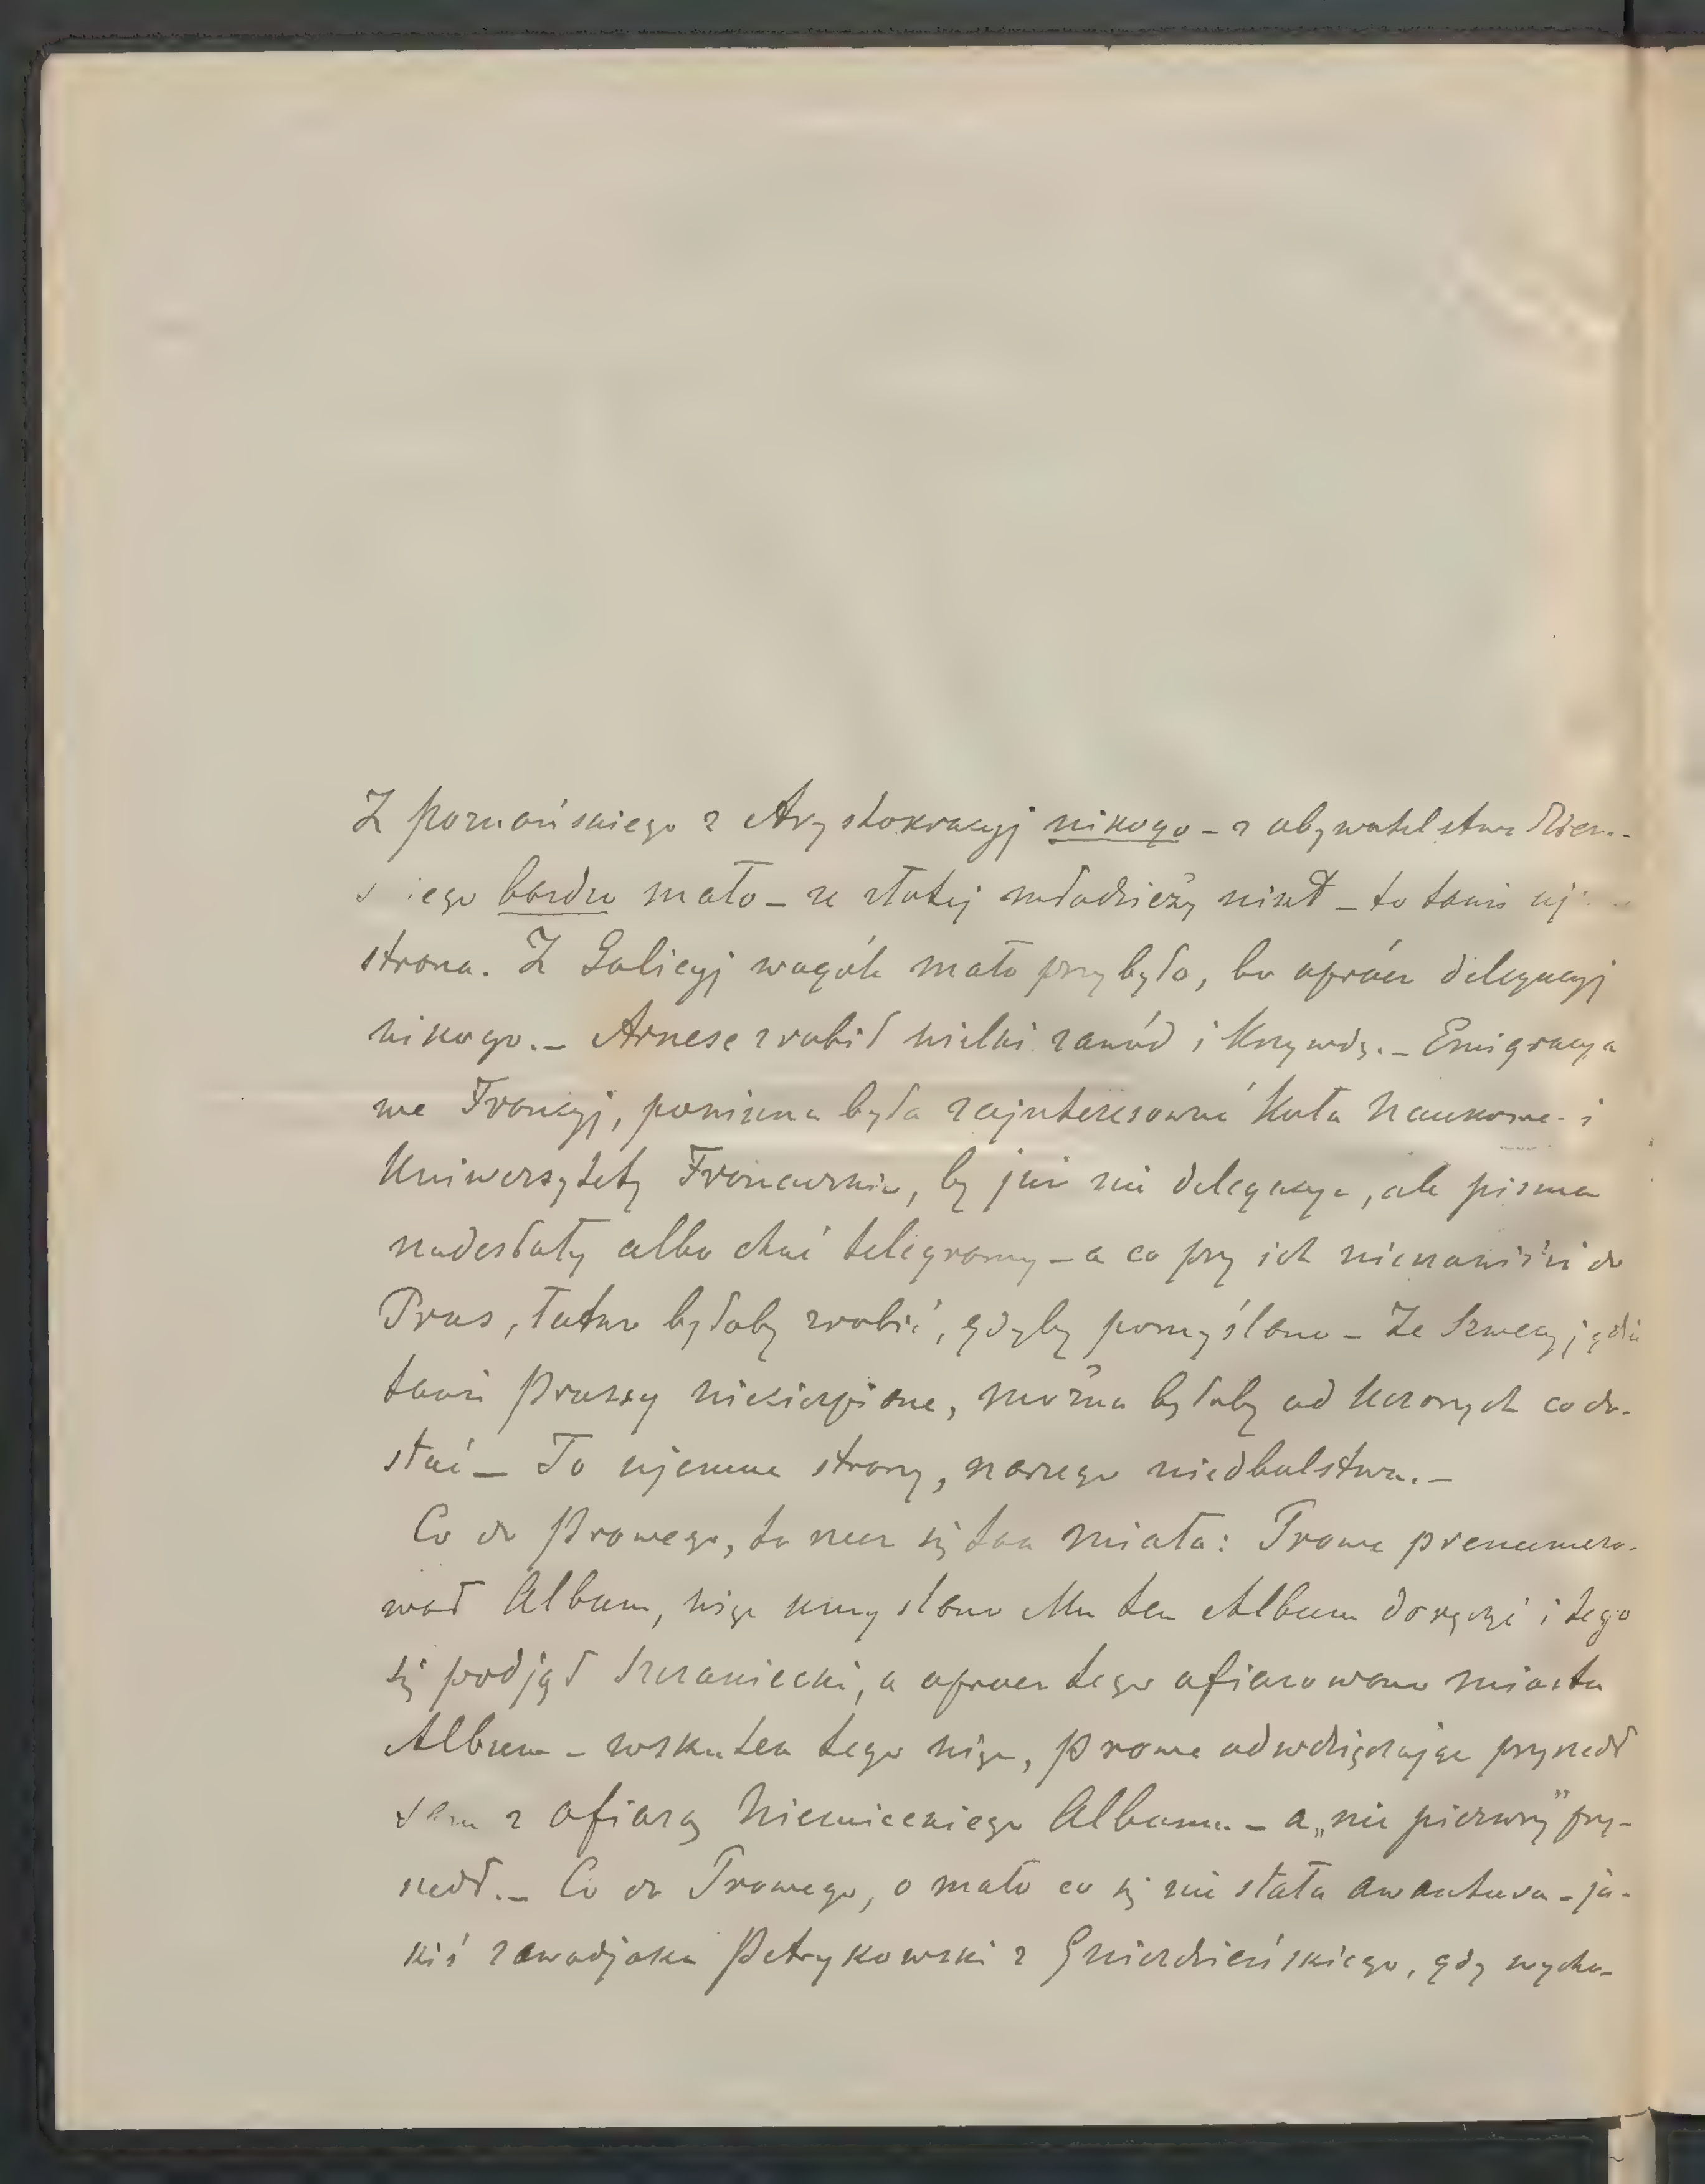 Z poznańskiego z Arystokracyj nikogo – z obywatelstwa Ziem-
skiego bardzo mało – ze złotej młodzieży nikt – to także uj
strona. Z Galicyj wogóle mało przybyło, bo oprócz delegacyj
nikogo. – Arnese zrobił wielki zawód i krzywdę. – Emigracya
we Francyj, powinna była zajnteresować koła Naukowe i
Uniwersytety Francuzkie, by już nie delegacye, ale pisma
nadesłały albo choć telegramy – a co przy ich nienawiści do
Prus, łatwo byłoby zrobić, gdyby pomyślano – Ze Szwecyj gdzie
także Prussy niecierpione, można byłoby od Uczonych co do-
stać – To ujemne strony, naszego niedbalstwa. –
Co do Prowego, to rzecz się tak miała: Prowe prenumero-
wał Album, więc umyslono Mu ten Album doręczyć i tego
się podjął Szczaniecki, a oprocz tego ofiarowano miastu
Album – wskutek tego więc, Prowe odwdzięczając przyszedł
sam z ofiarą Niemieckiego Albumu – a „nie pierwszy” przy-
szedł. – Co do Prowego, o mało co się nie stała awantura – ja-
kiś zawadjaka Petrykowski z Gnieździeńskiego, gdy wycho-